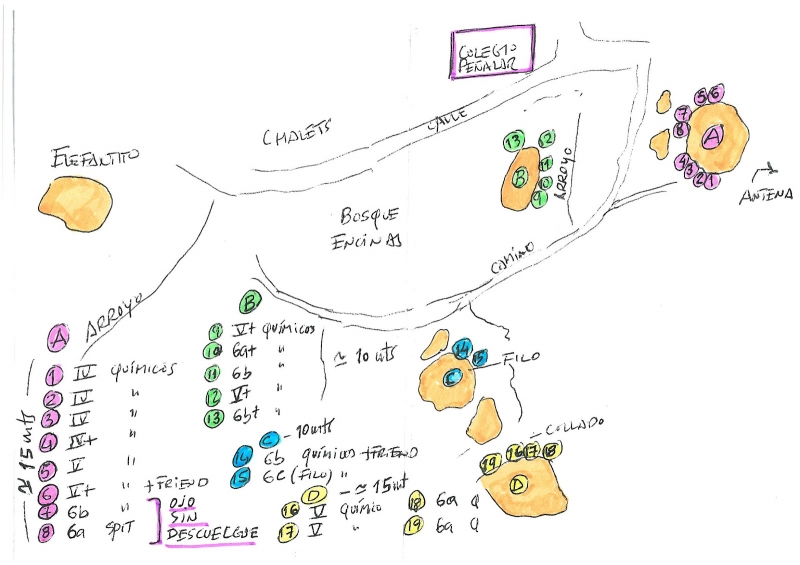 COLEGIO
PEÑALAR
CHALÉTS
CALLE
ELEFANTITO
5 6
7
8
A
4 3 2 1
ANTENA
13 12
11
B
10
9
ARROYO
BOSQUE
ENCINAS
CAMINO
ARROYO
14 15
FILO
C
COLLADO
19 16 17 18
D
A
≃ 15 mts
1 IV químicos
2 IV "
3 IV "
4 IV+ "
5 V "
6 V+ " + FRIEND
7 6b "
8 6a SPIT
OJO
SIN
DESCUELGUE
B
9 V+ químicos
10 6a+ "
11 6b "
12 V+ "
13 6b+ "
≃ 10 mts
C - 10 mts
14 6b químicos + FRIEND
15 6C (FILO) "
D - ≃ 15 mt
16 V químio
17 V "
18 6a Q
19 6a Q